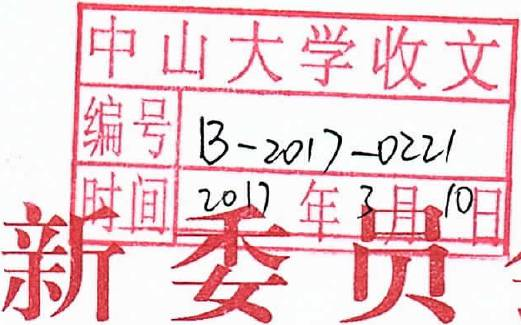 中山大学收文
编号 B-2017-0221
时间 2017年3月10日
新委员